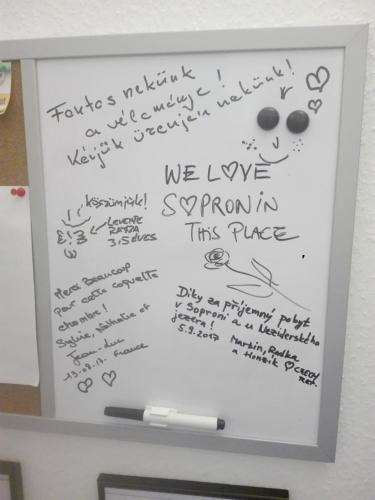 Fontos nekünk
a véleménye!
Kérjük üzenjen nekünk!
WE LOVE
SOPRON IN
THIS PLACE
köszönjük!
LEVENTE
RAJZA
3,5 ÉVES
Merci Beaucoup
pour cette coquette
chambre!
Sylvie, Nathalie et
Jean-Luc
13.08.17. France
Díky za příjemný pobyt
v Soproni a u Neziderského
jezera!
5.9.2017
Martin, Radka
a Honzík
CZECH
REP.